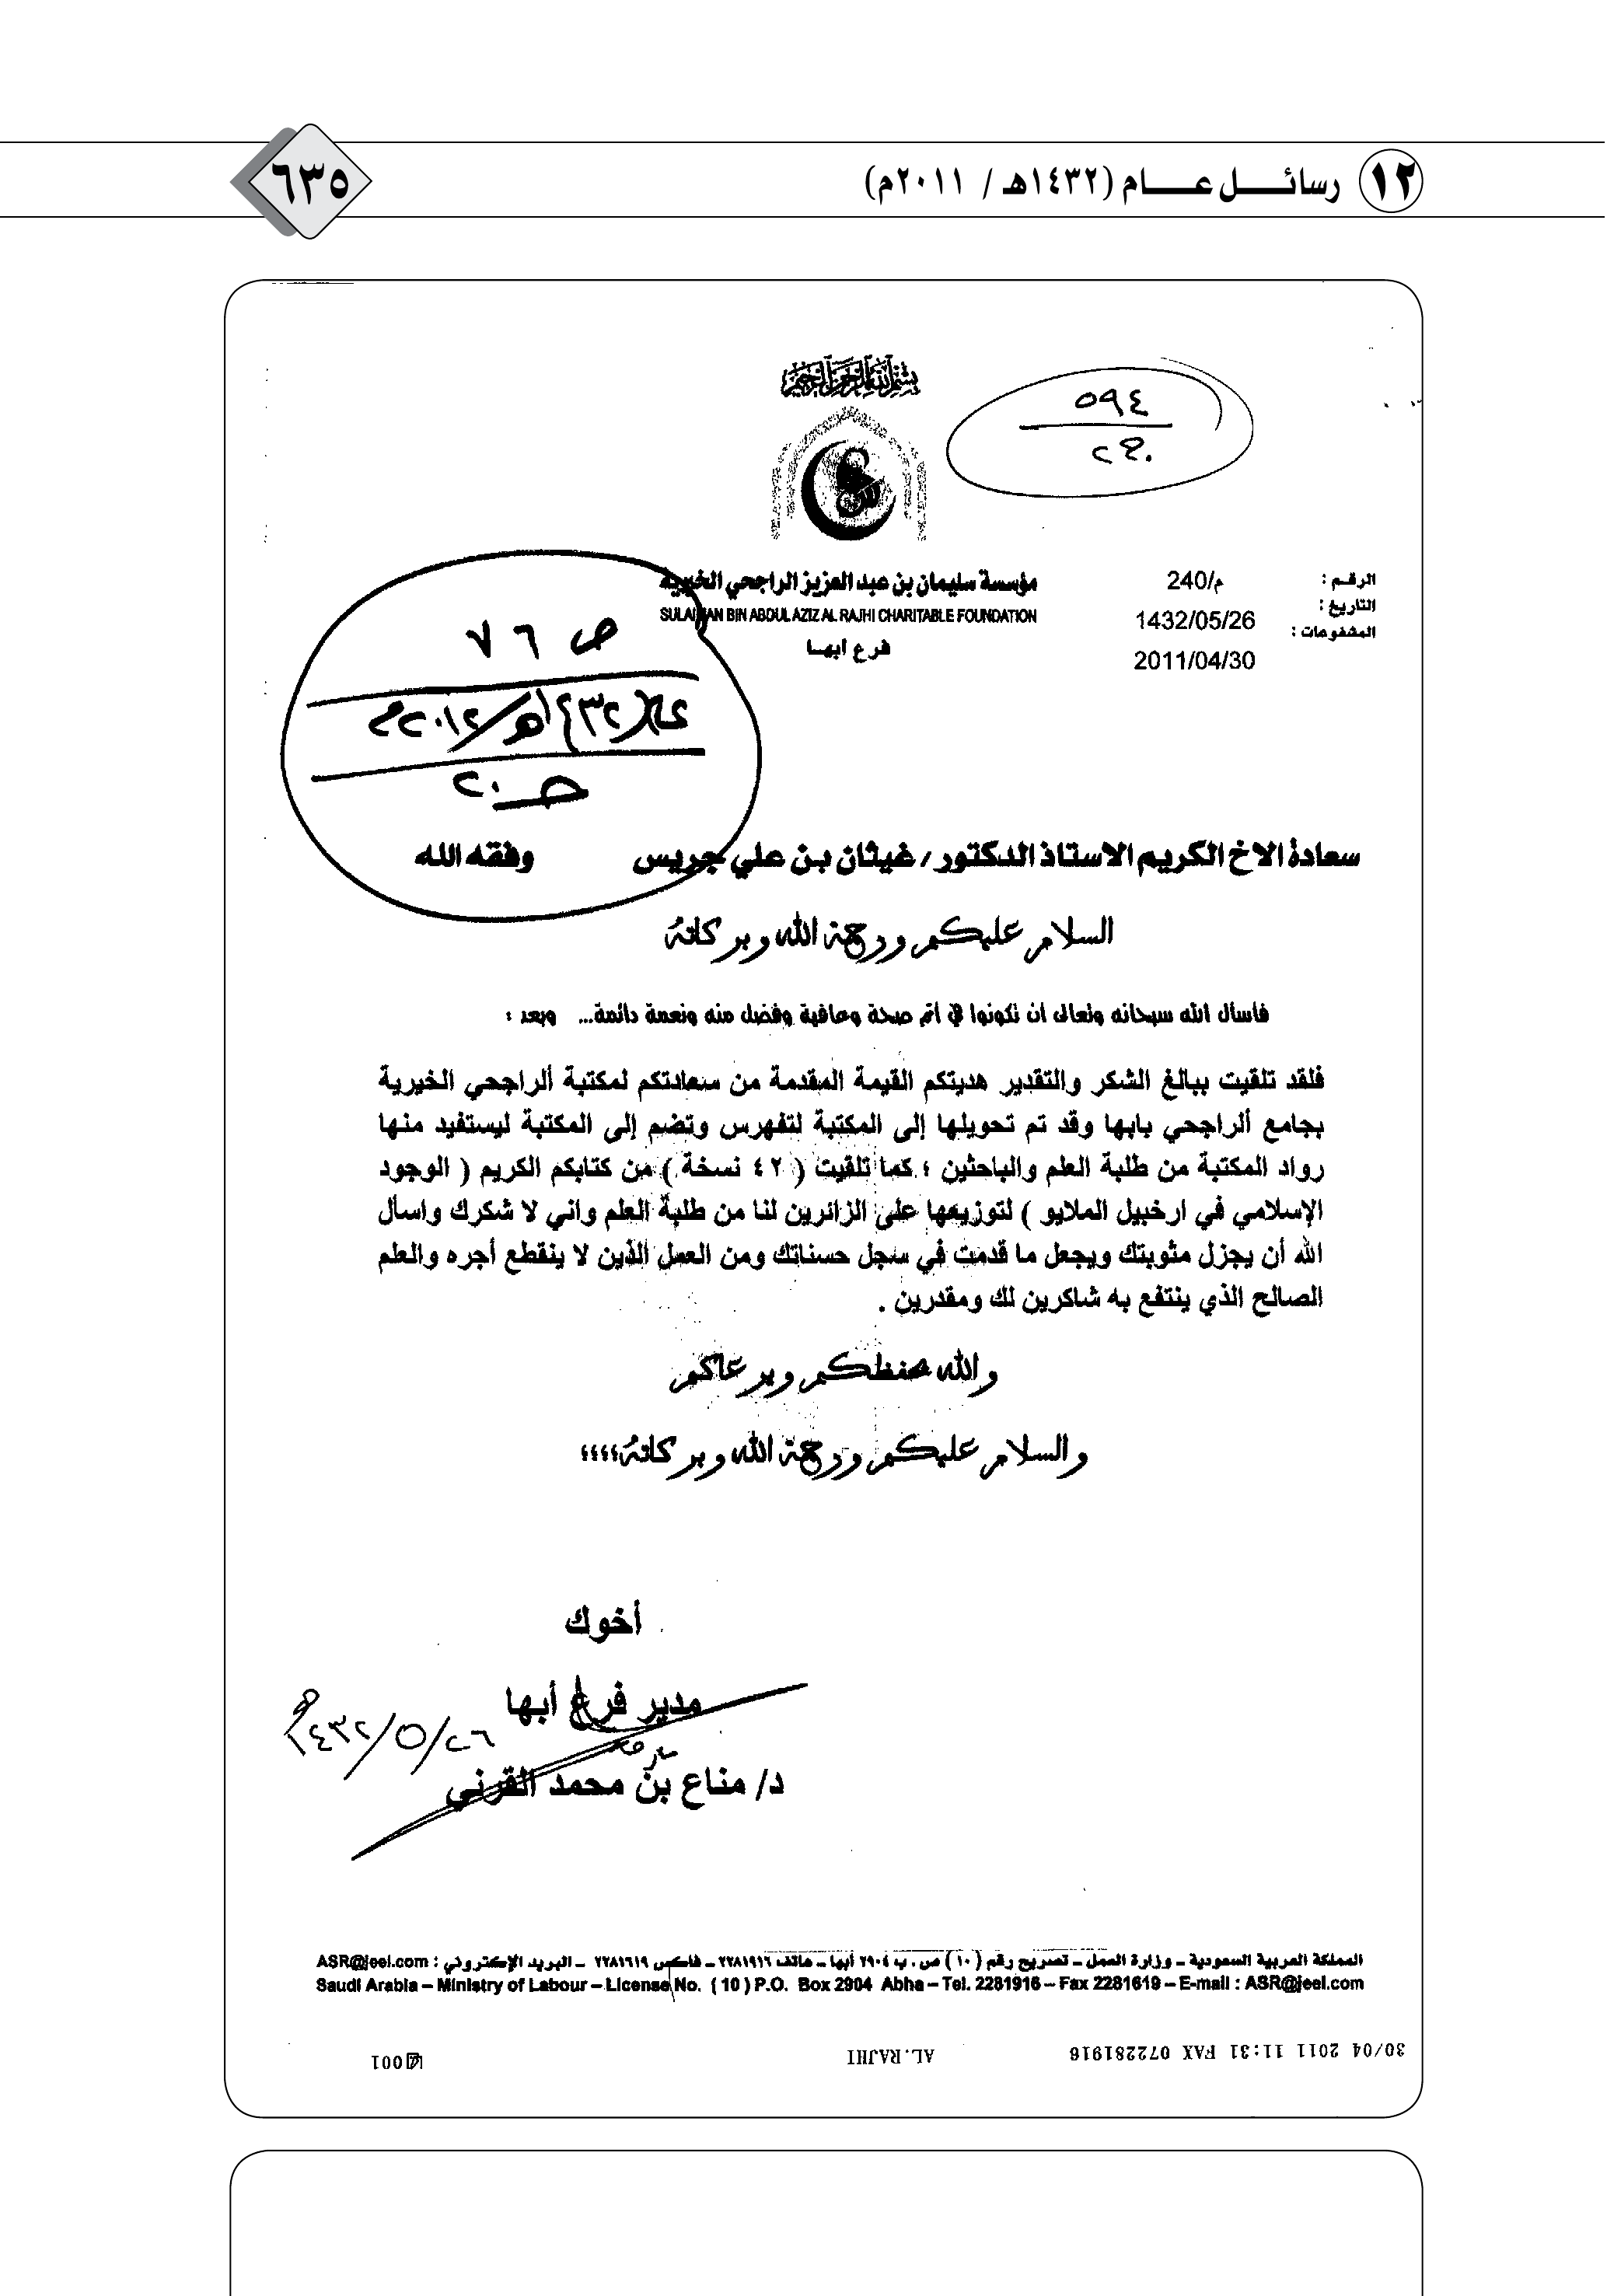 ١٢ رسائل عام (١٤٣٢هـ / ٢٠١١م)
٦٣٥
بسم الله الرحمن الرحيم
٥٩٤
ج٢٠
مؤسسة سليمان بن عبد العزيز الراجحي الخيرية
SULAIMAN BIN ABDUL AZIZ AL RAJHI CHARITABLE FOUNDATION
فرع ابها
الرقم : م/240
التاريخ : 1432/05/26
المشفوعات :
2011/04/30
ص ٧٦
عام (١٤٣٢هـ/٢٠١٢م
ج ٢٠
سعادة الاخ الكريم الاستاذ الدكتور / غيثان بن علي جريس وفقه الله
السلام عليكم ورحمة الله وبركاته
فأسأل الله سبحانه وتعالى ان تكونوا في أتم صحة وعافية وفضل منه ونعمة دائمة... وبعد :
فلقد تلقيت ببالغ الشكر والتقدير هديتكم القيمة المقدمة من سعادتكم لمكتبة ألراجحي الخيرية
بجامع ألراجحي بابها وقد تم تحويلها إلى المكتبة لتفهرس وتضم إلى المكتبة ليستفيد منها
رواد المكتبة من طلبة العلم والباحثين ؛ كما تلقيت ( ٤٢ نسخة ) من كتابكم الكريم ( الوجود
الإسلامي في ارخبيل الملايو ) لتوزيعها على الزائرين لنا من طلبة العلم واني لا شكرك واسأل
الله أن يجزل مثوبتك ويجعل ما قدمت في سجل حسناتك ومن العمل الذين لا ينقطع أجره والعلم
الصالح الذي ينتفع به شاكرين لك ومقدرين .
والله يحفظكم ويرعاكم
والسلام عليكم ورحمة الله وبركاته؛؛؛؛
أخوك
مدير فرع أبها
١٤٣٢/٥/٢٦هـ
د/ مناع بن محمد القرني
المملكة العربية السعودية – وزارة العمل – تصريح رقم ( ١٠ ) ص . ب ٢٩٠٤ أبها – هاتف ٢٢٨١٩١٦ – فاكس ٢٢٨١٦١٩ – البريد الإلكتروني : ASR@jeel.com
Saudi Arabia – Ministry of Labour – License No. ( 10 ) P.O. Box 2904 Abha – Tel. 2281916 – Fax 2281619 – E-mail : ASR@jeel.com
30/04 2011 11:31 FAX 072281916 AL.RAJHI 001